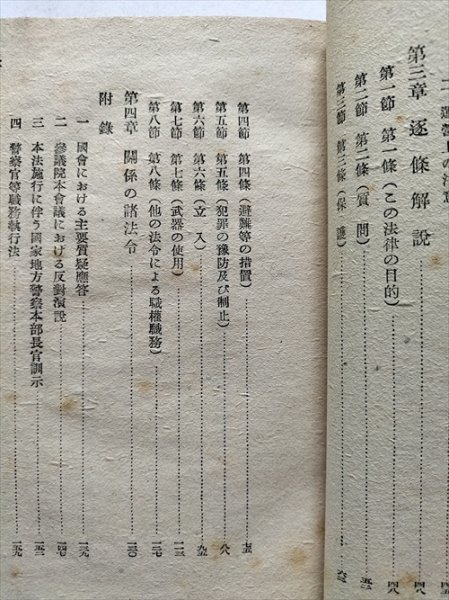 二 運営上の注意
第三章 逐條解說
第一節 第一條（この法律の目的） 四八
第二節 第二條（質問）
第三節 第三條（保護） 六三
第四節 第四條（避難等の措置） 七五
第五節 第五條（犯罪の豫防及び制止） 八六
第六節 第六條（立入） 九五
第七節 第七條（武器の使用） 一一三
第八節 第八條（他の法令による職權職務） 一二七
第四章 關係の諸法令 一三〇
附錄
一 國會における主要質疑應答 一三九
二 參議院本會議における反對演說 一四七
三 本法施行に伴う國家地方警察本部長官訓示 一五三
四 警察官等職務執行法 一五九